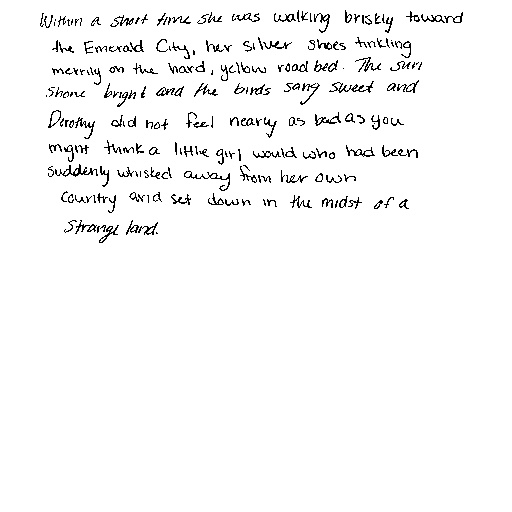 Within a short time she was walking briskly toward
the Emerald City, her silver shoes tinkling
merrily on the hard, yellow road bed. The sun
shone bright and the birds sang sweet and
Dorothy did not feel nearly as bad as you
might think a little girl would who had been
suddenly whisked away from her own
country and set down in the midst of a
strange land.